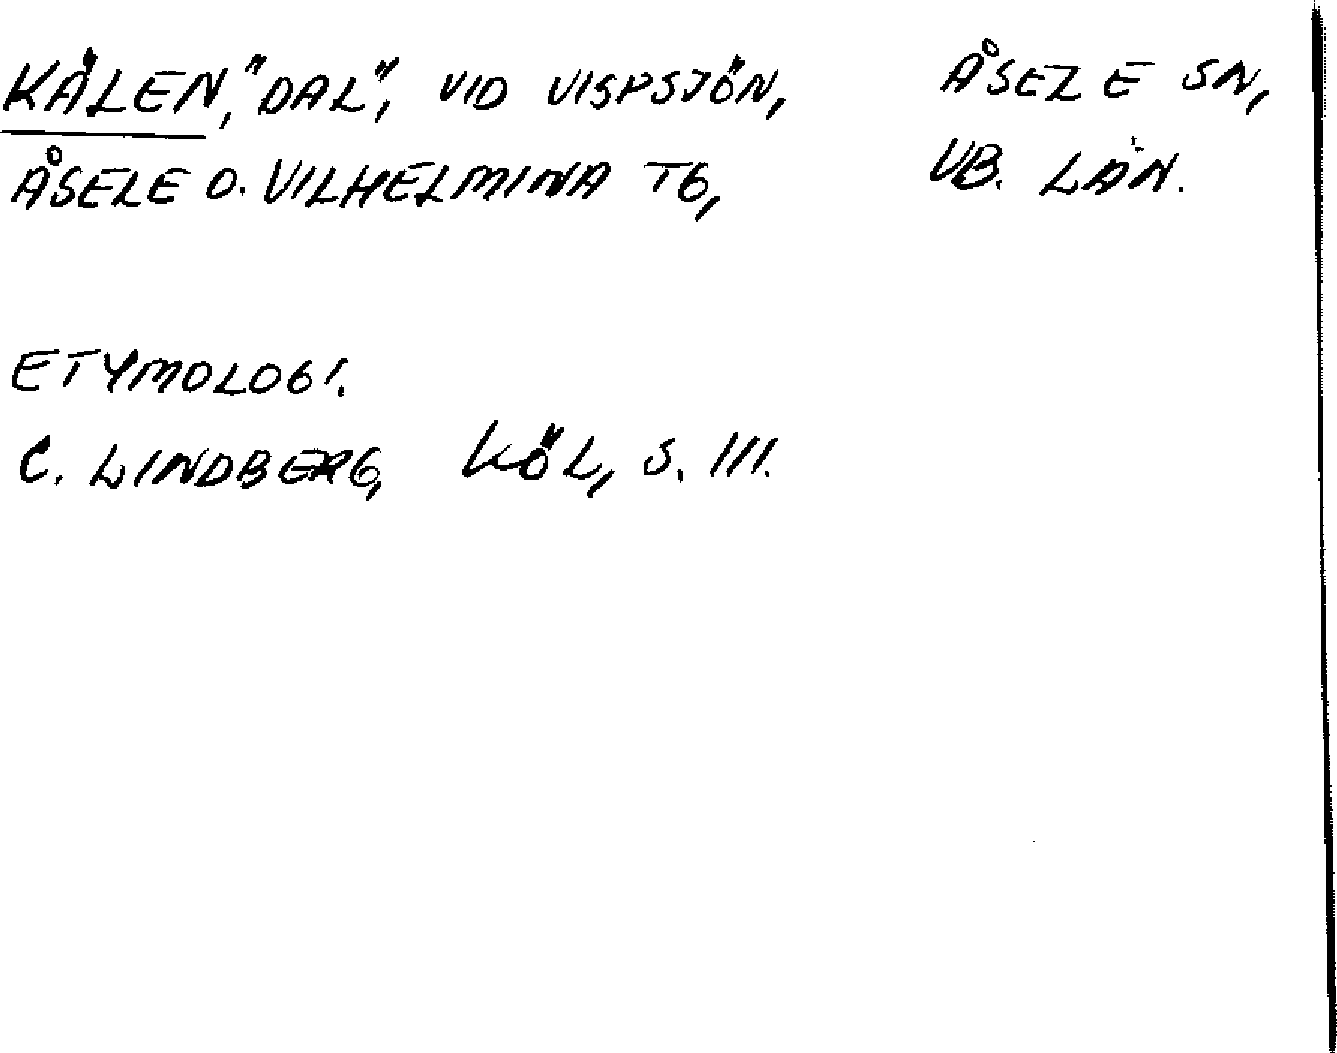 KÄLEN, "DAL", VID VISPSJÖN, ÅSELE SN,
ÅSELE O. VILHELMINA TG, VB. LÄN.
ETYMOLOGI.
C. LINDBERG, KÖL, S. 111.